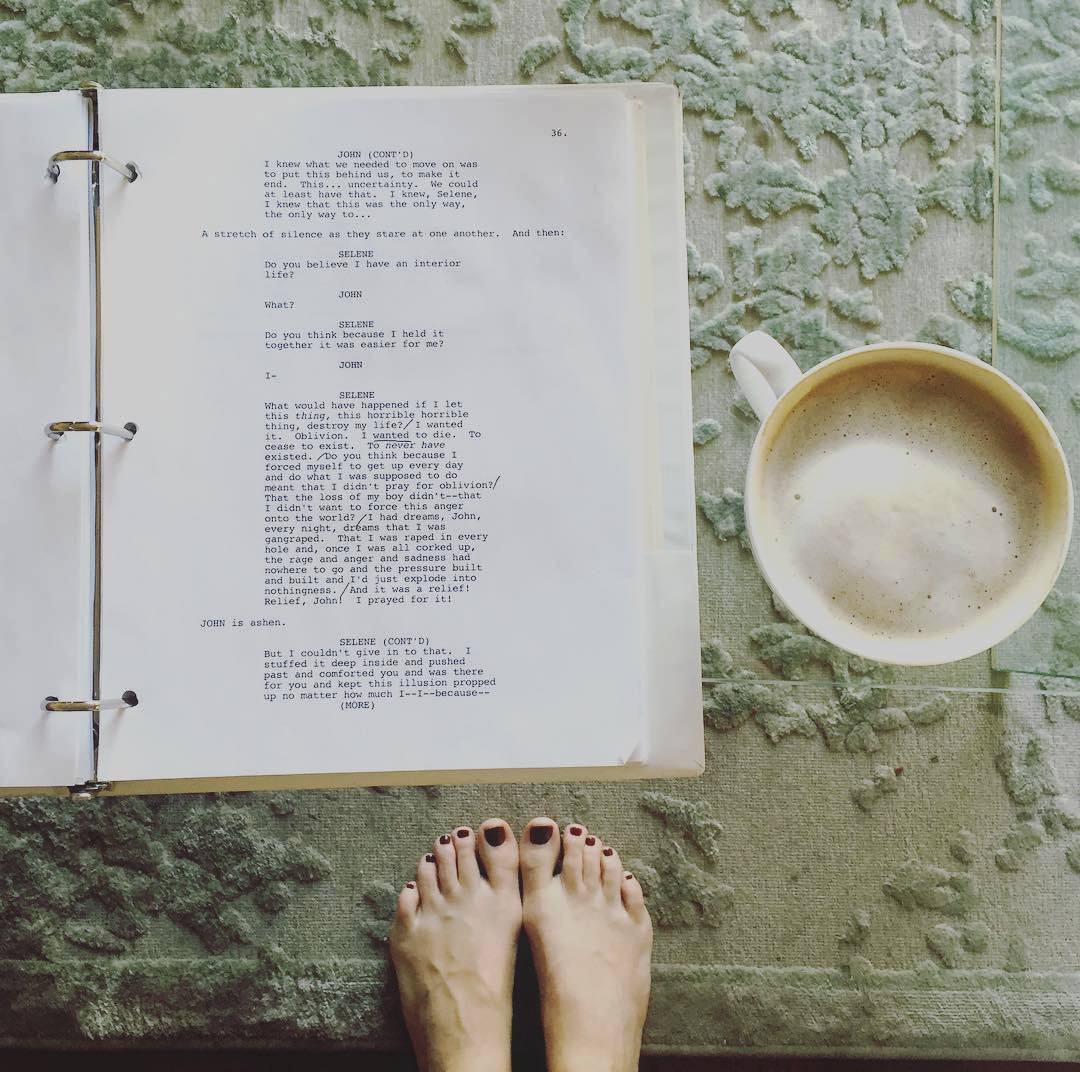 36.
JOHN (CONT'D)
I knew what we needed to move on was
to put this behind us, to make it
end. This... uncertainty. We could
at least have that. I knew, Selene,
I knew that this was the only way,
the only way to...
A stretch of silence as they stare at one another. And then:
SELENE
Do you believe I have an interior
life?
JOHN
What?
SELENE
Do you think because I held it
together it was easier for me?
JOHN
I-
SELENE
What would have happened if I let
this thing, this horrible horrible
thing, destroy my life?/I wanted
it. Oblivion. I wanted to die. To
cease to exist. To never have
existed. /Do you think because I
forced myself to get up every day
and do what I was supposed to do
meant that I didn't pray for oblivion?/
That the loss of my boy didn't--that
I didn't want to force this anger
onto the world?/I had dreams, John,
every night, dreams that I was
gangraped. That I was raped in every
hole and, once I was all corked up,
the rage and anger and sadness had
nowhere to go and the pressure built
and built and I'd just explode into
nothingness. /And it was a relief!
Relief, John! I prayed for it!
JOHN is ashen.
SELENE (CONT'D)
But I couldn't give in to that. I
stuffed it deep inside and pushed
past and comforted you and was there
for you and kept this illusion propped
up no matter how much I--I--because--
(MORE)